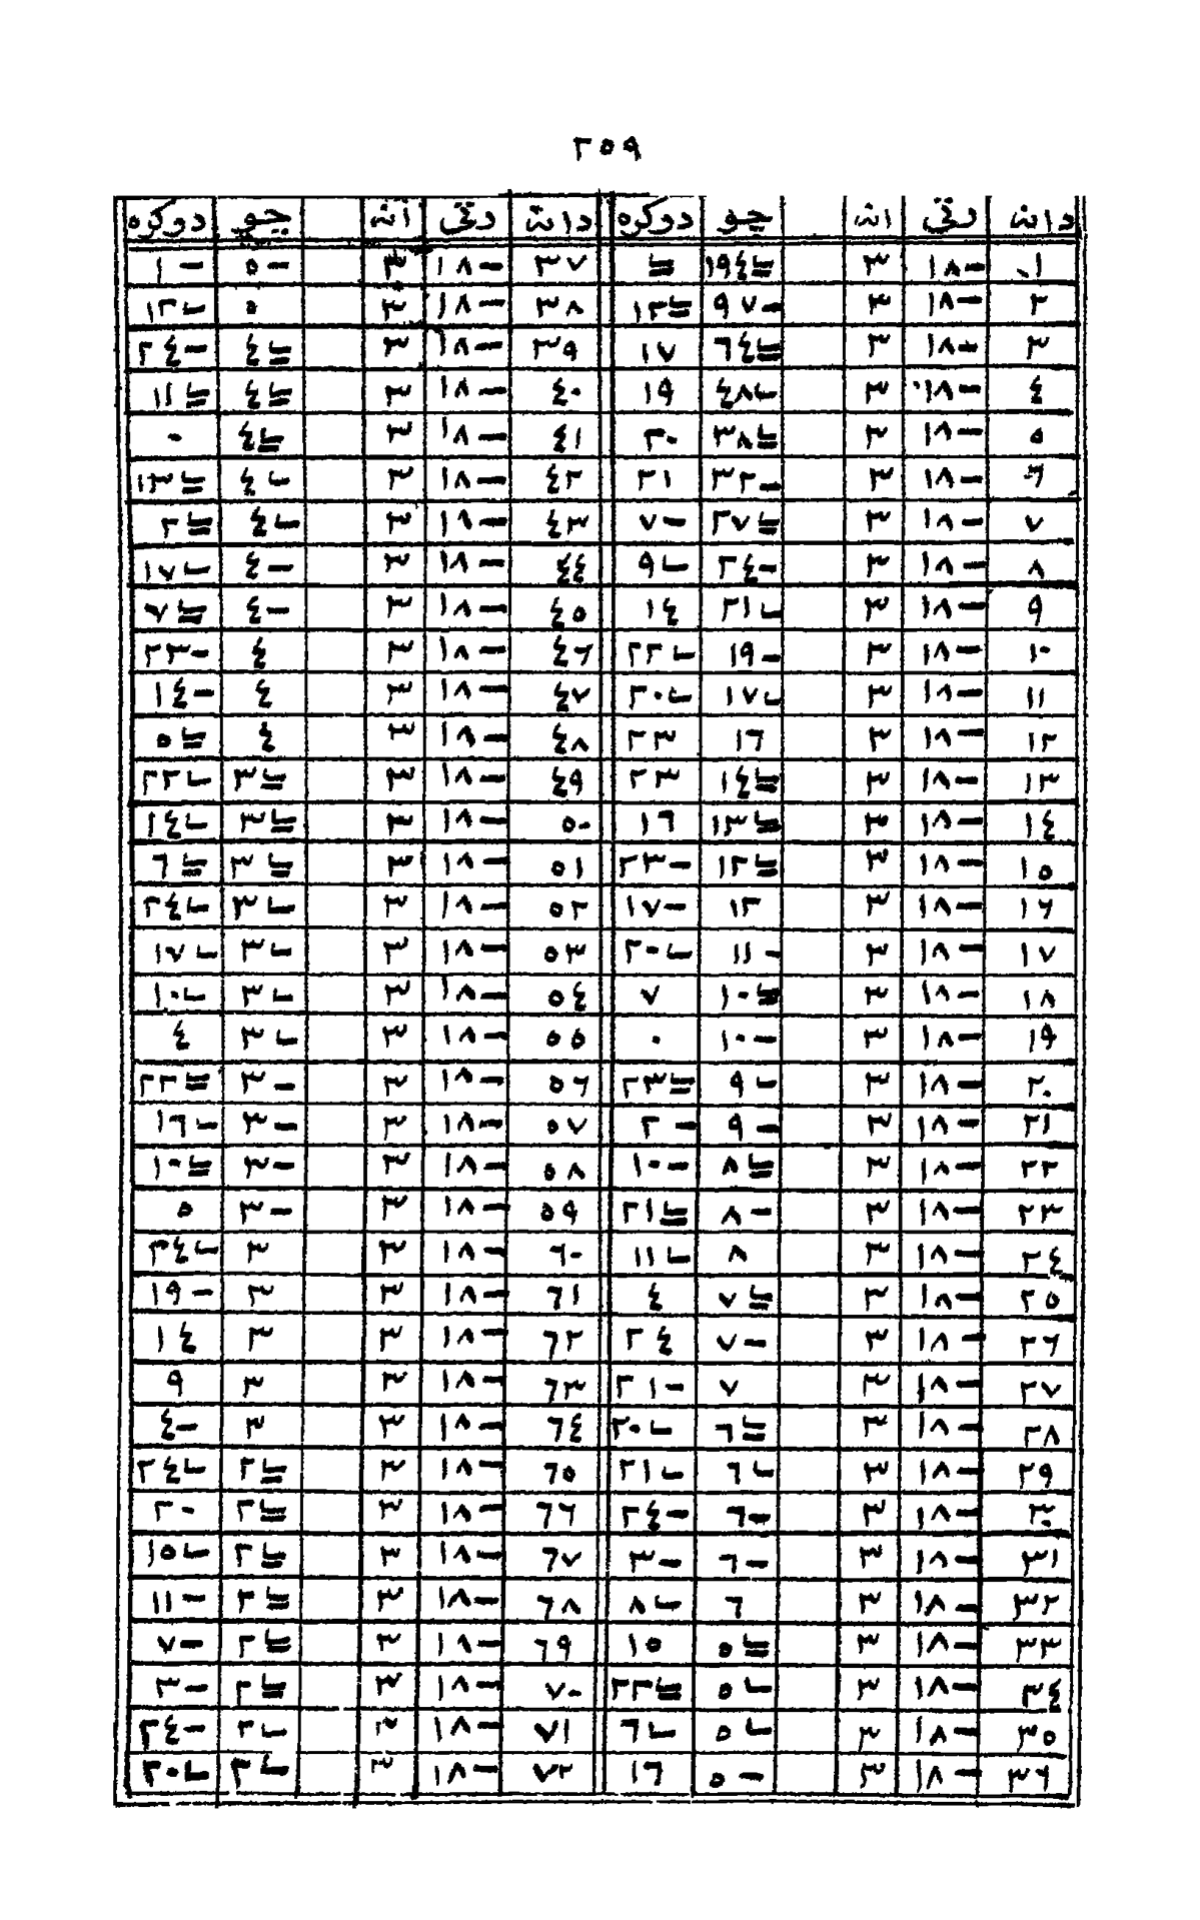 ٢٥٩
دانه رتي انه چو دوكره دانة رتي آنه چو دوكره
١ -١٨ ٣ ١٩٤ ٣٧ -١٨ ٣ -٥ -١
٢ -١٨ ٣ -٩٧ ١٢ ٣٨ -١٨ ٣ ٥ ١٢
٣ -١٨ ٣ ٦٤ ١٧ ٣٩ -١٨ ٣ ٤ -٢٤
٤ -١٨ ٣ ٤٨ ١٩ ٤٠ -١٨ ٣ ٤ ١١
٥ -١٨ ٣ ٣٨ ٢٠ ٤١ -١٨ ٣ ٤ ٠
٦ -١٨ ٣ -٣٢ ٢١ ٤٢ -١٨ ٣ ٤ ١٣
٧ -١٨ ٣ ٢٧ -٧ ٤٣ -١٨ ٣ ٤ ٢
٨ -١٨ ٣ -٢٤ ٩ ٤٤ -١٨ ٣ -٤ ١٧
٩ -١٨ ٣ ٢١ ١٤ ٤٥ -١٨ ٣ -٤ ٧
١٠ -١٨ ٣ -١٩ ٢٢ ٤٦ -١٨ ٣ ٤ -٢٣
١١ -١٨ ٣ ١٧ ٢٠ ٤٧ -١٨ ٣ ٤ -١٤
١٢ -١٨ ٣ ١٦ ٢٣ ٤٨ -١٨ ٣ ٤ ٥
١٣ -١٨ ٣ ١٤ ٢٣ ٤٩ -١٨ ٣ ٣ ٢٢
١٤ -١٨ ٣ ١٣ ١٦ ٥٠ -١٨ ٣ ٣ ١٤
١٥ -١٨ ٣ ١٢ -٢٣ ٥١ -١٨ ٣ ٣ ٦
١٦ -١٨ ٣ ١٢ -١٧ ٥٢ -١٨ ٣ ٣ ٢٤
١٧ -١٨ ٣ -١١ ٢٠ ٥٣ -١٨ ٣ ٣ ١٧
١٨ -١٨ ٣ ١٠ ٧ ٥٤ -١٨ ٣ ٣ ١٠
١٩ -١٨ ٣ -١٠ ٠ ٥٥ -١٨ ٣ ٣ ٤
٢٠ -١٨ ٣ ٩ ٢٣ ٥٦ -١٨ ٣ -٣ ٢٢
٢١ -١٨ ٣ -٩ -٢ ٥٧ -١٨ ٣ -٣ ١٦
٢٢ -١٨ ٣ ٨ -١٠ ٥٨ -١٨ ٣ -٣ ١٠
٢٣ -١٨ ٣ -٨ ٢١ ٥٩ -١٨ ٣ -٣ ٥
٢٤ -١٨ ٣ ٨ ١١ ٦٠ -١٨ ٣ ٣ ٢٤
٢٥ -١٨ ٣ ٧ ٤ ٦١ -١٨ ٣ ٣ -١٩
٢٦ -١٨ ٣ -٧ ٢٤ ٦٢ -١٨ ٣ ٣ ١٤
٢٧ -١٨ ٣ ٧ -٢١ ٦٣ -١٨ ٣ ٣ ٩
٢٨ -١٨ ٣ ٦ ٢٠ ٦٤ -١٨ ٣ ٣ -٤
٢٩ -١٨ ٣ ٦ ٢١ ٦٥ -١٨ ٣ ٢ ٢٤
٣٠ -١٨ ٣ -٦ -٢٤ ٦٦ -١٨ ٣ ٢ ٢٠
٣١ -١٨ ٣ -٦ -٣ ٦٧ -١٨ ٣ ٢ ١٥
٣٢ -١٨ ٣ ٦ ٨ ٦٨ -١٨ ٣ ٢ -١١
٣٣ -١٨ ٣ ٥ ١٥ ٦٩ -١٨ ٣ ٢ -٧
٣٤ -١٨ ٣ ٥ ٢٢ ٧٠ -١٨ ٣ ٢ -٣
٣٥ -١٨ ٣ ٥ ٦ ٧١ -١٨ ٣ ٢ -٢٤
٣٦ -١٨ ٣ -٥ ١٦ ٧٢ -١٨ ٣ ٢٠